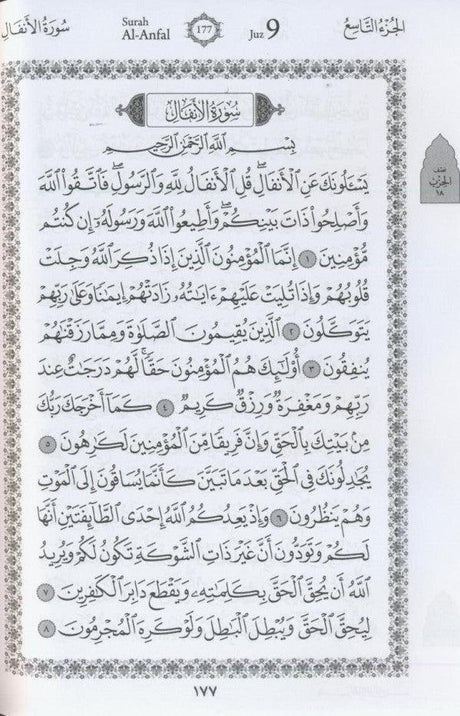 سُورَةُ الأَنفَال
Surah
Al-Anfal
177
Juz 9
الجُزْءُ التَّاسِعُ
سُورَةُ الأَنفَالِ
بِسْمِ اللَّهِ الرَّحْمَٰنِ الرَّحِيمِ
يَسْـَٔلُونَكَ عَنِ ٱلْأَنفَالِ ۖ قُلِ ٱلْأَنفَالُ لِلَّهِ وَٱلرَّسُولِ ۖ فَٱتَّقُوا۟ ٱللَّهَ
وَأَصْلِحُوا۟ ذَاتَ بَيْنِكُمْ ۖ وَأَطِيعُوا۟ ٱللَّهَ وَرَسُولَهُۥٓ إِن كُنتُم
مُّؤْمِنِينَ ١ إِنَّمَا ٱلْمُؤْمِنُونَ ٱلَّذِينَ إِذَا ذُكِرَ ٱللَّهُ وَجِلَتْ
قُلُوبُهُمْ وَإِذَا تُلِيَتْ عَلَيْهِمْ ءَايَـٰتُهُۥ زَادَتْهُمْ إِيمَـٰنًا وَعَلَىٰ رَبِّهِمْ
يَتَوَكَّلُونَ ٢ ٱلَّذِينَ يُقِيمُونَ ٱلصَّلَوٰةَ وَمِمَّا رَزَقْنَـٰهُمْ
يُنفِقُونَ ٣ أُو۟لَـٰٓئِكَ هُمُ ٱلْمُؤْمِنُونَ حَقًّا ۚ لَّهُمْ دَرَجَـٰتٌ عِندَ
رَبِّهِمْ وَمَغْفِرَةٌ وَرِزْقٌ كَرِيمٌ ٤ كَمَآ أَخْرَجَكَ رَبُّكَ
مِنۢ بَيْتِكَ بِٱلْحَقِّ وَإِنَّ فَرِيقًا مِّنَ ٱلْمُؤْمِنِينَ لَكَـٰرِهُونَ ٥
يُجَـٰدِلُونَكَ فِى ٱلْحَقِّ بَعْدَ مَا تَبَيَّنَ كَأَنَّمَا يُسَاقُونَ إِلَى ٱلْمَوْتِ
وَهُمْ يَنظُرُونَ ٦ وَإِذْ يَعِدُكُمُ ٱللَّهُ إِحْدَى ٱلطَّآئِفَتَيْنِ أَنَّهَا
لَكُمْ وَتَوَدُّونَ أَنَّ غَيْرَ ذَاتِ ٱلشَّوْكَةِ تَكُونُ لَكُمْ وَيُرِيدُ
ٱللَّهُ أَن يُحِقَّ ٱلْحَقَّ بِكَلِمَـٰتِهِۦ وَيَقْطَعَ دَابِرَ ٱلْكَـٰفِرِينَ ٧
لِيُحِقَّ ٱلْحَقَّ وَيُبْطِلَ ٱلْبَـٰطِلَ وَلَوْ كَرِهَ ٱلْمُجْرِمُونَ ٨
نصف
الحزب
١٨
١٧٧